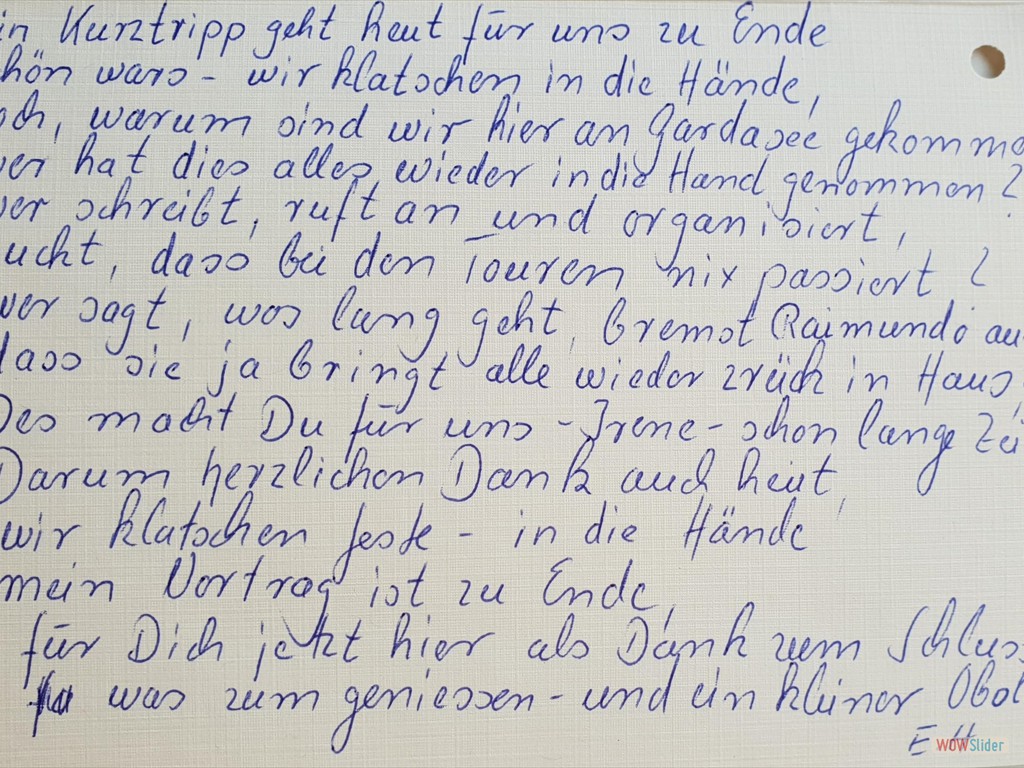 in Kurztripp geht heut für uns zu Ende
hön wars - wir klatschen in die Hände,
och, warum sind wir hier an Gardasee gekomme
wer hat dies alles wieder in die Hand genommen ?
wer schreibt, ruft an und organisiert,
uckt, dass bei den Touren nix passiert ?
wer sagt, wos lang geht, bremst Raimundo au
dass sie ja bringt alle wieder zrück in Haus,
Des macht Du für uns - Irene - schon lange Zei
Darum herzlichen Dank auch heut,
wir klatschen feste - in die Hände
mein Vortrag ist zu Ende,
für Dich jetzt hier als Dank zum Schluss
was zum geniessen - und ein kleiner Obol
E H
WOWSlider